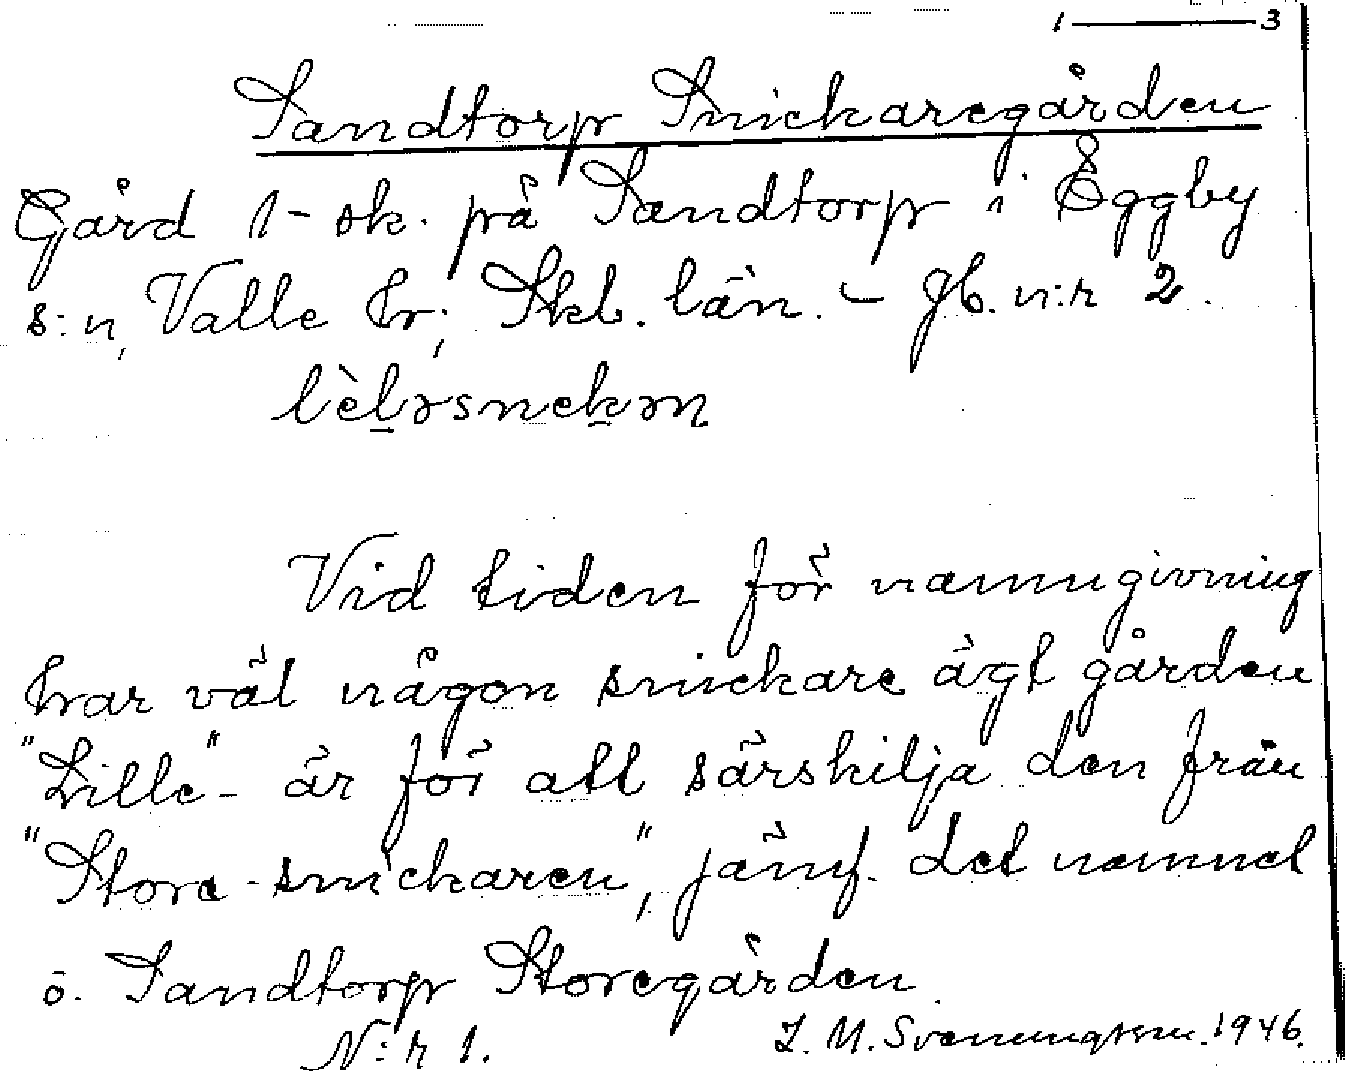 1 — 3
Sandtorp Snickaregården
Gård 1-sk. på Sandtorp i Eggby
s:n, Valle hr; Skb. län. – gb. n:r 2.
lèləsnekən
Vid tiden för namngivning
har väl någon snickare ägt gården
"Lille"- är för att särskilja den från
"Store-snickaren", jämf. det namnet
ö. Sandtorp Storegården.
N:r 1. 1946.